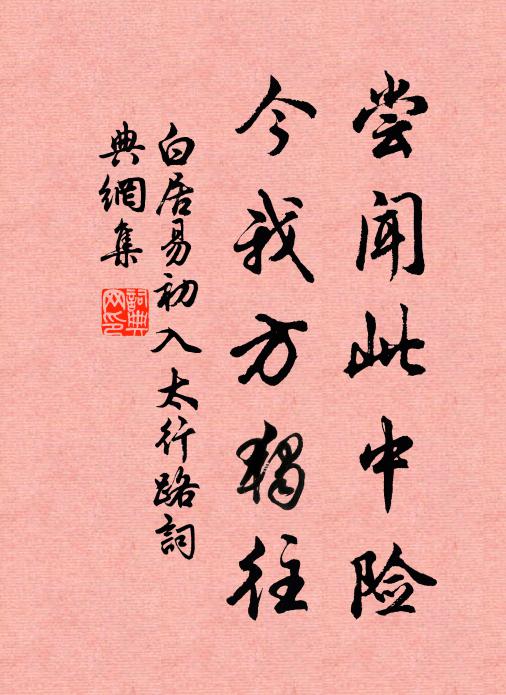 尝闻此中险
今我方独往
白居易初入太行路詞
典網集
詞典网印